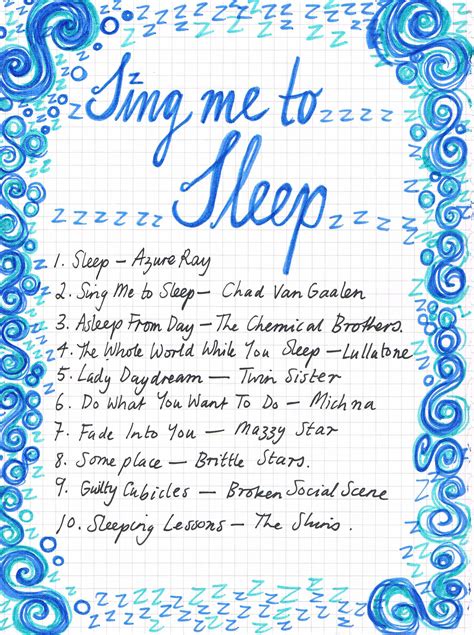 Sing me to
Sleep
1. Sleep — Azure Ray
2. Sing Me to Sleep — Chad Van Gaalen
3. Asleep From Day — The Chemical Brothers.
4. The Whole World While You Sleep — Lullatone
5. Lady Daydream — Twin Sister
6. Do What You Want To Do — Michna
7. Fade Into You — Mazzy Star
8. Some place — Brittle Stars.
9. Guilty Cubicles — Broken Social Scene
10. Sleeping Lessons — The Shins.